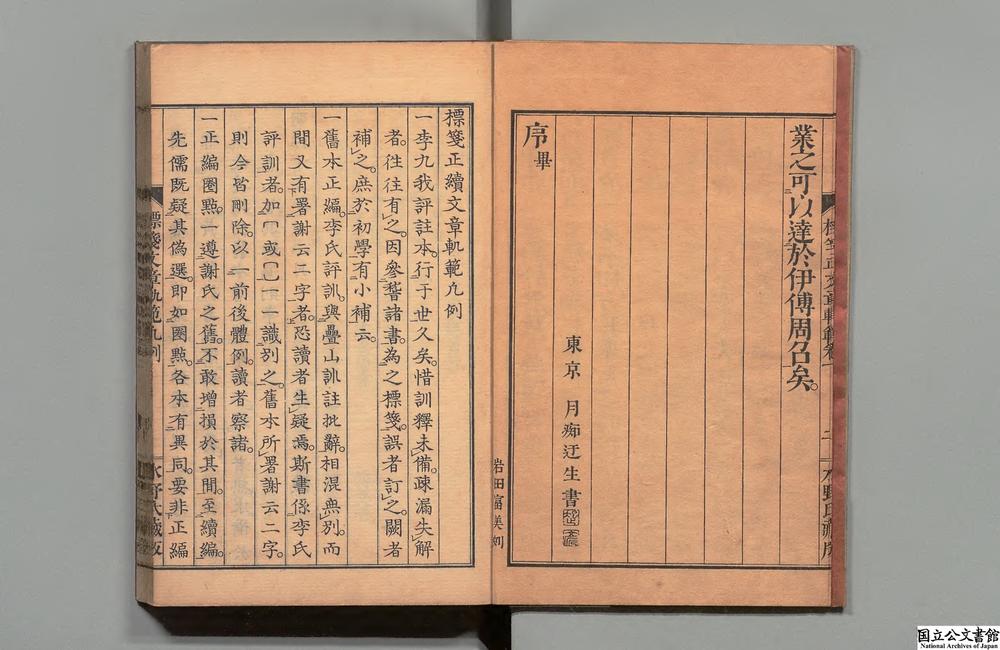 業之可以達於伊傅周召矣。
東京 月痴迂生書
序畢
岩田富美刻
標箋正續文章軌範凡例
一李九我評註本。行于世久矣。惜訓釋未備。疎漏失解
者。往往有之。因參諸書。爲之標箋。誤者訂之。闕者
補之。庶於初學有小補云。
一舊本正編。李氏評訓。與疊山訓註批辭。相混無別。而
間又有署謝云二字者。恐讀者生疑焉。斯書係李氏
評訓者。加〔或〔〕一一識別之。舊本所署謝云二字。
則今皆刪除。以一前後體例。讀者察諸。
一正編圈點。一遵謝氏之舊。不敢增損於其間。至續編。
先儒既疑其偽選。即如圈點。各本有異同。要非正編
標箋文章軌範凡例
水野氏藏版
國立公文書館
National Archives of Japan